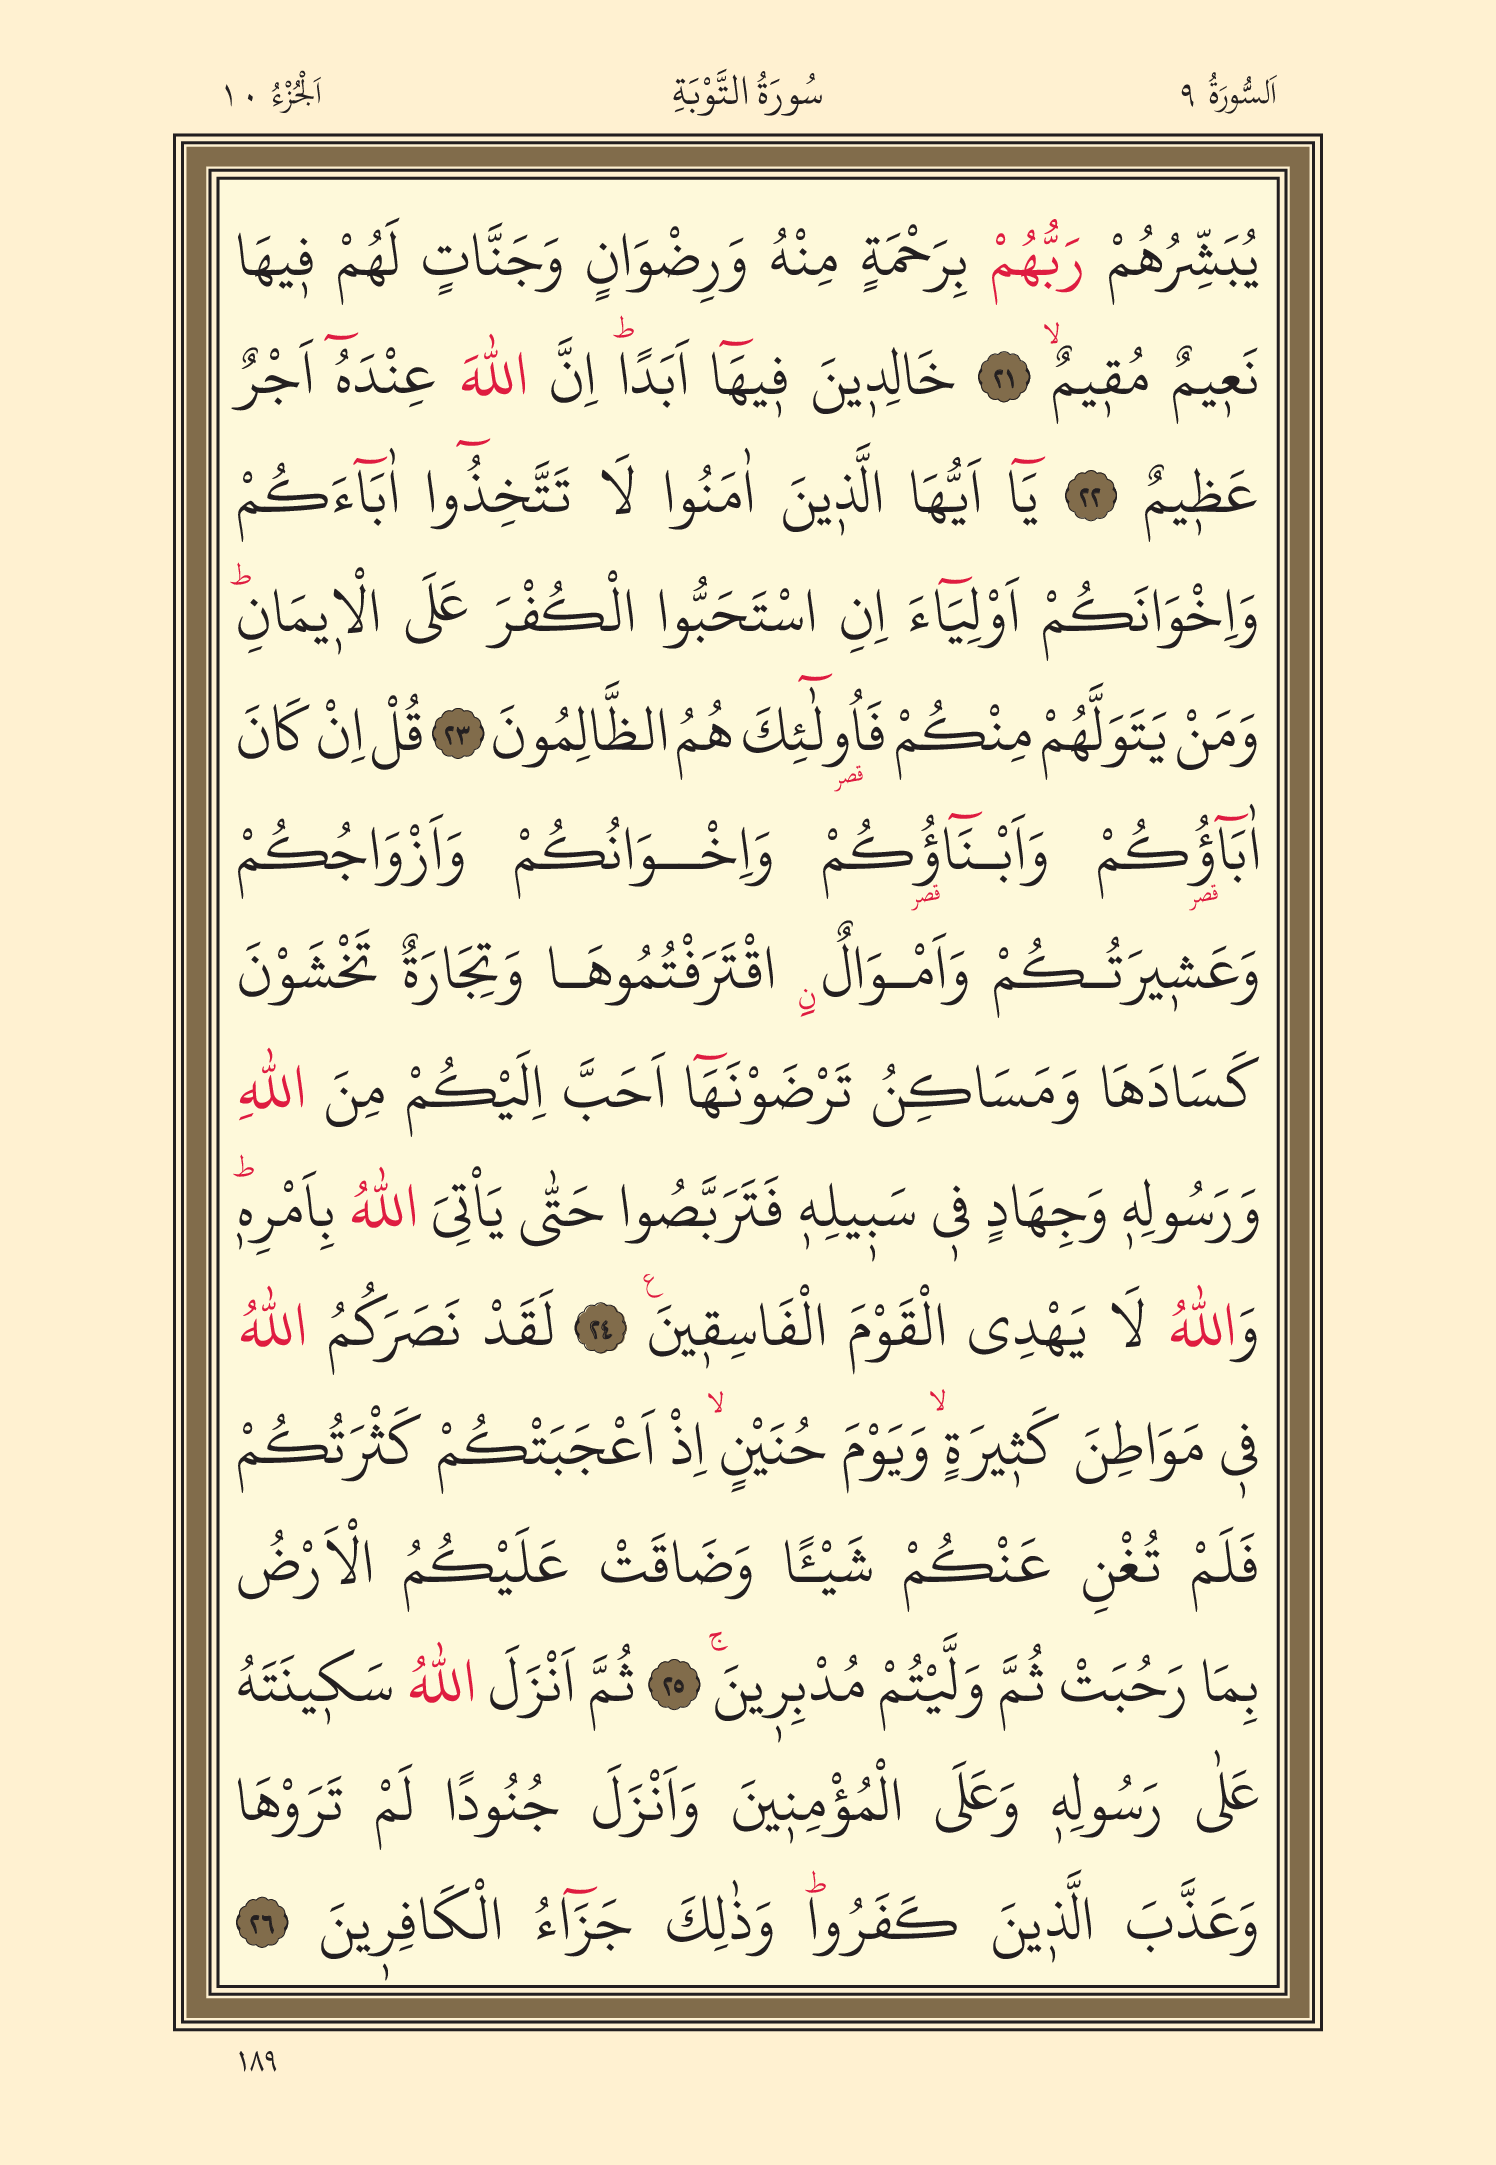 اَلسُّورَةُ ٩
سُورَةُ التَّوْبَةِ
اَلْجُزْءُ ١٠
يُبَشِّرُهُمْ رَبُّهُمْ بِرَحْمَةٍ مِنْهُ وَرِضْوَانٍ وَجَنَّاتٍ لَهُمْ ف۪يهَا
نَع۪يمٌ مُق۪يمٌۙ ﴿٢١﴾ خَالِد۪ينَ ف۪يهَٓا اَبَدًاۜ اِنَّ اللّٰهَ عِنْدَهُٓ اَجْرٌ
عَظ۪يمٌ ﴿٢٢﴾ يَٓا اَيُّهَا الَّذ۪ينَ اٰمَنُوا لَا تَتَّخِذُٓوا اٰبَٓاءَكُمْ
وَاِخْوَانَكُمْ اَوْلِيَٓاءَ اِنِ اسْتَحَبُّوا الْكُفْرَ عَلَى الْا۪يمَانِۜ
وَمَنْ يَتَوَلَّهُمْ مِنْكُمْ فَاُو۬لٰٓئِكَ هُمُ الظَّالِمُونَ ﴿٢٣﴾ قُلْ اِنْ كَانَ
قصر
اٰبَٓاؤُ۬كُمْ وَاَبْنَٓاؤُ۬كُمْ وَاِخْوَانُكُمْ وَاَزْوَاجُكُمْ
قصر قصر
وَعَش۪يرَتُكُمْ وَاَمْوَالٌ نِ اقْتَرَفْتُمُوهَا وَتِجَارَةٌ تَخْشَوْنَ
كَسَادَهَا وَمَسَاكِنُ تَرْضَوْنَهَٓا اَحَبَّ اِلَيْكُمْ مِنَ اللّٰهِ
وَرَسُولِه۪ وَجِهَادٍ ف۪ي سَب۪يلِه۪ فَتَرَبَّصُوا حَتّٰى يَأْتِيَ اللّٰهُ بِاَمْرِه۪ۜ
وَاللّٰهُ لَا يَهْدِي الْقَوْمَ الْفَاسِق۪ينَ۟ ﴿٢٤﴾ لَقَدْ نَصَرَكُمُ اللّٰهُ
ف۪ي مَوَاطِنَ كَث۪يرَةٍۙ وَيَوْمَ حُنَيْنٍۙ اِذْ اَعْجَبَتْكُمْ كَثْرَتُكُمْ
فَلَمْ تُغْنِ عَنْكُمْ شَيْـًٔا وَضَاقَتْ عَلَيْكُمُ الْاَرْضُ
بِمَا رَحُبَتْ ثُمَّ وَلَّيْتُمْ مُدْبِر۪ينَۚ ﴿٢٥﴾ ثُمَّ اَنْزَلَ اللّٰهُ سَك۪ينَتَهُ
عَلٰى رَسُولِه۪ وَعَلَى الْمُؤْمِن۪ينَ وَاَنْزَلَ جُنُودًا لَمْ تَرَوْهَا
وَعَذَّبَ الَّذ۪ينَ كَفَرُواۜ وَذٰلِكَ جَزَٓاءُ الْكَافِر۪ينَ ﴿٢٦﴾
١٨٩